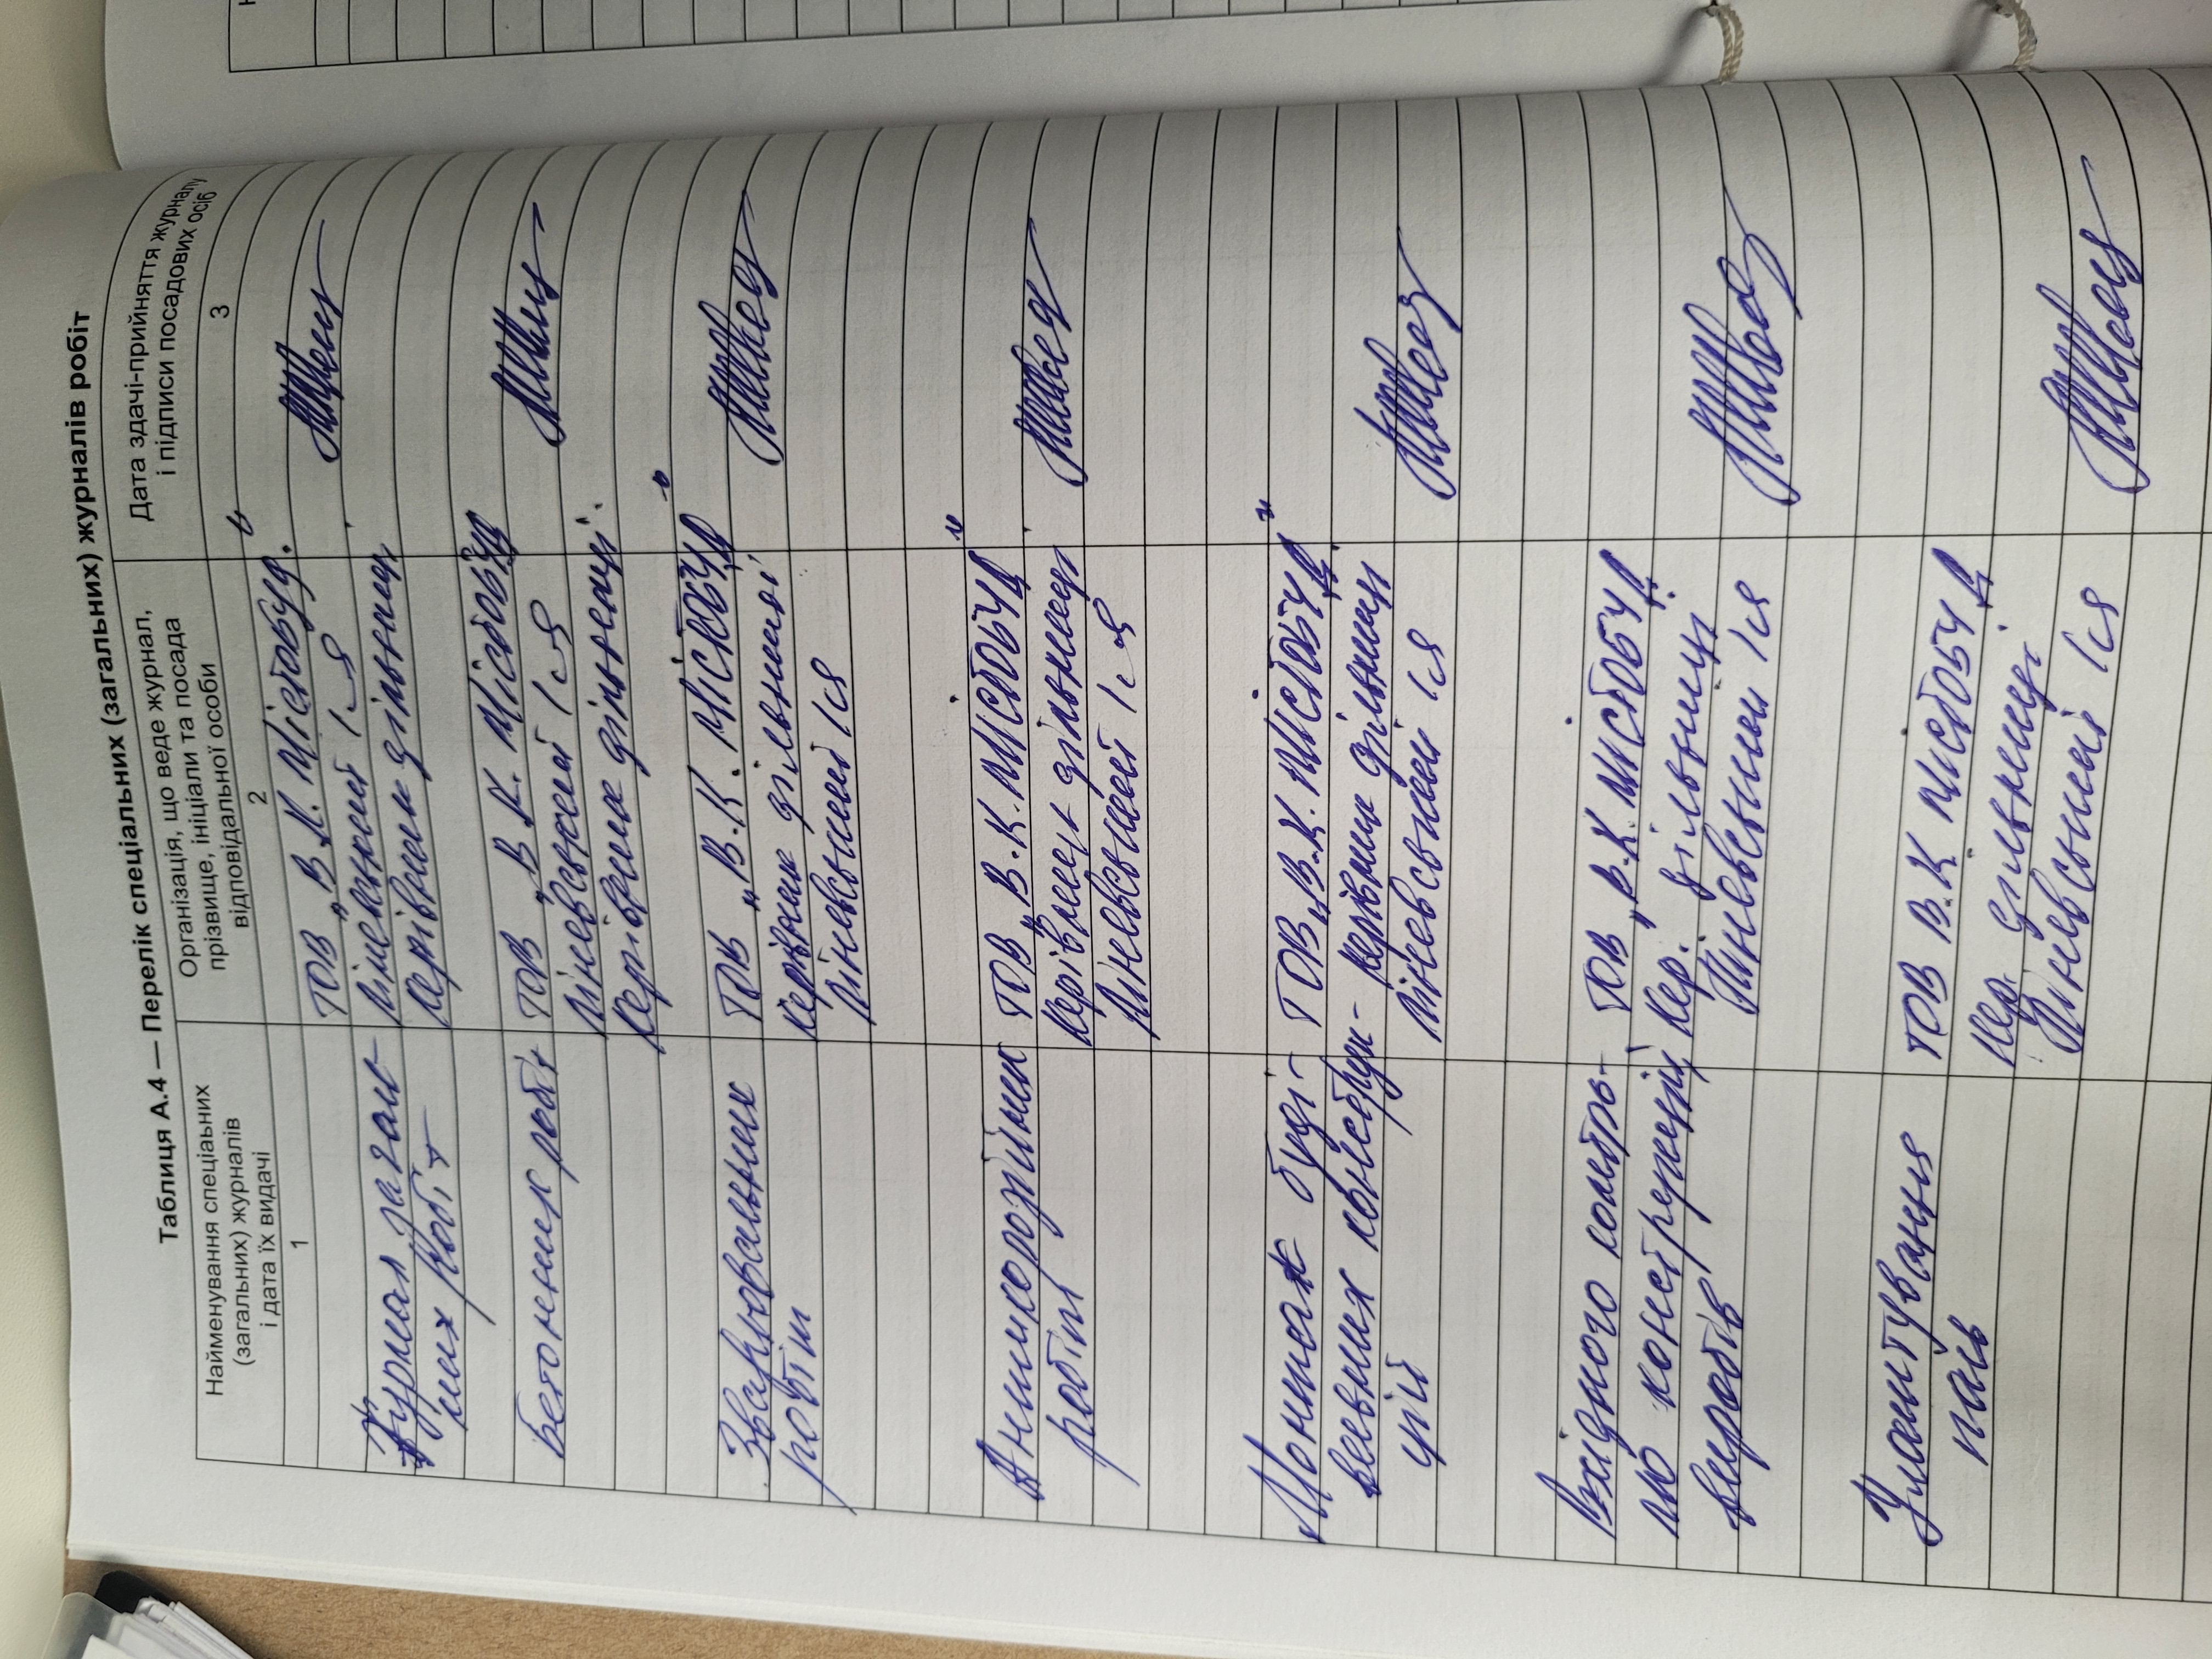 Таблиця А.4 — Перелік спеціальних (загальних) журналів робіт
Найменування спеціаьних
(загальних) журналів
і дата їх видачі
Організація, що веде журнал,
прізвище, ініціали та посада
відповідальної особи
Дата здачі-прийняття журналу
і підписи посадових осіб
1
2
3
Журнал загаль
них робіт
ТОВ „В.К. Містобуд."
Піневський І.Я
керівник дільниці
Бетонних робіт
ТОВ „В.К. Містобуд
Піневський І.Я
керівник дільниці.
Зварювальних
робіт
ТОВ „В.К. МІСТОБУД"
керівник дільниці
Піневський І.Я
Антикорозійних
робіт
ТОВ „В.К. МІСТОБУД"
керівник дільниці
Піневський І.Я
Монтаж буді-
вельних конструк-
цій
ТОВ „В.К. МІСТОБУД"
керівник дільниці
Піневський І.Я
Вхідного контро-
лю конструкцій,
виробів
ТОВ „В.К МІСТОБУД.
Кер. дільниці
Піневський І.Я
Улаштування
паль
ТОВ В.К МІСТОБУД
Кер. дільниці
Піневський І.Я